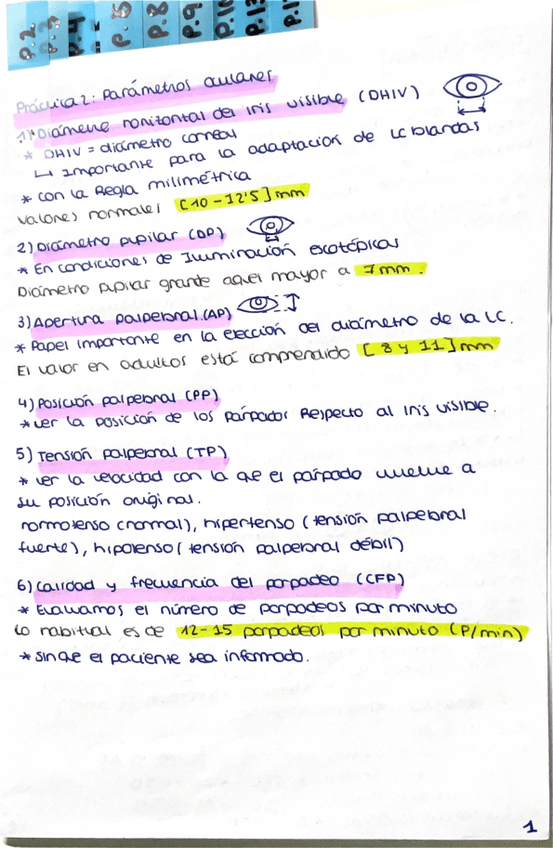 P.2
P.3
P.4
P.5
P.8
P.9
P.10
P.13
Práctica 2: Parámetros oculares
1) Diámetro horizontal del iris visible (DHIV)
* DHIV = diámetro corneal
↳ Importante para la adaptación de LC blandas
* con la Regla milimétrica
Valores normales [10-12'5] mm
2) Diámetro pupilar (DP)
* En condiciones de Iluminación escotópicas
Diámetro pupilar grande aquel mayor a 7mm.
3) Apertura palpebral (AP)
* Papel importante en la elección del diámetro de la LC.
El valor en adultos está comprendido [8 y 11] mm
4) Posición palpebral (PP)
* ver la posición de los Párpados Respecto al Iris visible.
5) Tensión palpebral (TP)
* ver la velocidad con la que el párpado vuelve a
su posición original.
normotenso (normal), hipertenso (tensión palpebral
fuerte), hipotenso (tensión palpebral débil)
6) Calidad y frecuencia del parpadeo (CFP)
* Evaluamos el número de parpadeos por minuto
Lo habitual es de 12-15 parpadeos por minuto (P/min)
* sin que el paciente sea informado.
1